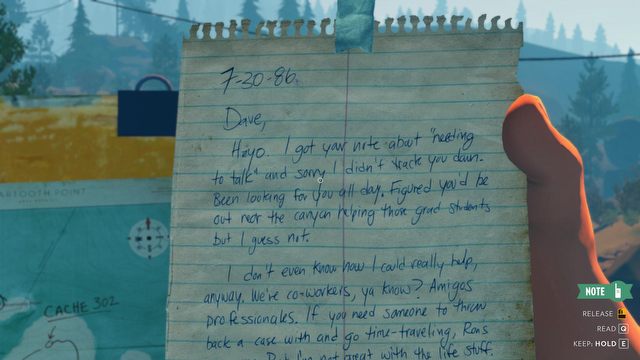 7-30-86.
Dave,
Heyo. I got your note about "needing
to talk" and sorry I didn't track you down.
Been looking for you all day. Figured you'd be
out near the canyon helping those grad students
but I guess not.
I don't even know how I could really help,
anyway. We're co-workers, ya know? Amigos
professionales. If you need someone to throw
back a case with and go time-traveling, Ron's
But I'm not great with the life stuff.
ARTOOTH POINT
CACHE 302
NOTE
RELEASE
READ Q
KEEP: HOLD E